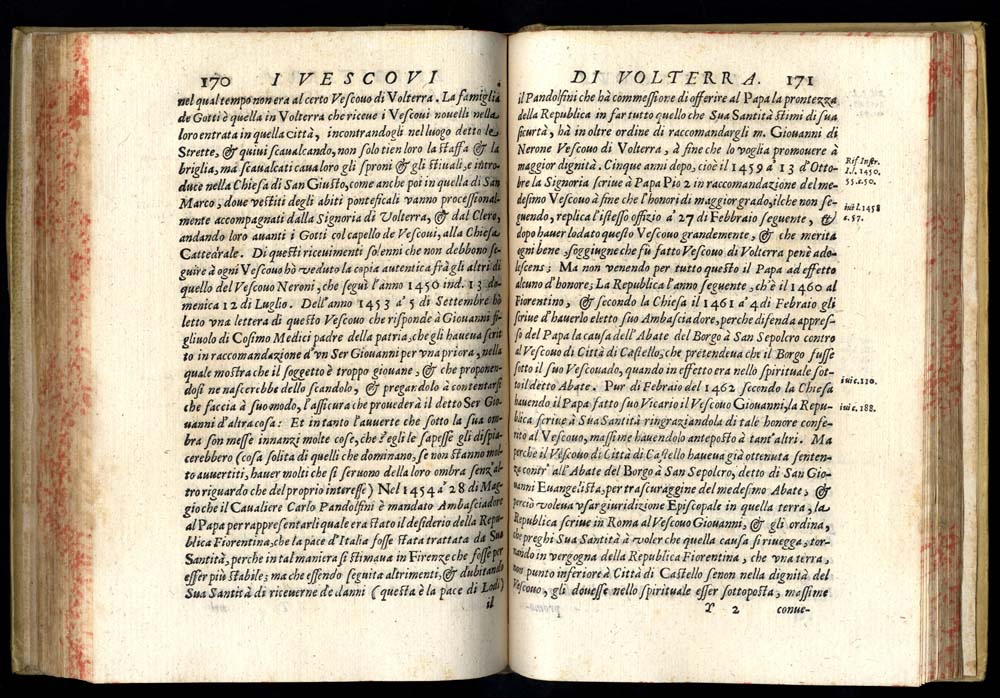 170 I VESCOVI
nel qual tempo non era al certo Vescouo di Volterra. La famiglia
de Gotti è quella in Volterra che riceue i Vescoui nouelli nella
loro entrata in quella città, incontrandogli nel luogo detto le
Strette, & quiui scaualcando, non solo tien loro la staffa & la
briglia, ma scaualcati caua loro gli sproni & gli stiuali, e intro-
duce nella Chiesa di San Giusto, come anche poi in quella di San
Marco, doue vestiti degli abiti ponteficali vanno processional-
mente accompagnati dalla Signoria di Volterra, & dal Clero,
andando loro auanti i Gotti col capello de Vescoui, alla Chiesa
Cattedrale. Di questi riceuimenti solenni che non debbono se-
guire à ogni Vescouo hò veduto la copia autentica frà gli altri di
quello del Vescouo Neroni, che seguì l'anno 1450 ind. 13 do-
menica 12 di Luglio. Dell'anno 1453 à 5 di Settembre hò
letto vna lettera di questo Vescouo che risponde à Giouanni fi-
gliuolo di Cosimo Medici padre della patria, che gli haueua scrit
to in raccomandazione d'vn Ser Giouanni per vna priora, nella
quale mostra che il soggetto è troppo giouane, & che proponen-
dosi ne nascerebbe dello scandolo, & pregandolo à contentarsi
che faccia à suo modo, l'assicura che prouederà il detto Ser Gio
uanni d'altra cosa: Et intanto l'auuerte che sotto la sua om-
bra son messe innanzi molte cose, che s'egli le sapesse gli dispia-
cerebbero (cosa solita di quelli che dominano, se non stanno mol-
to auuertiti, hauer molti che si seruono della loro ombra senz'al-
tro riguardo che del proprio interesse) Nel 1454 à 28 di Mag-
gio che il Caualiere Carlo Pandolfini è mandato Ambasciadore
al Papa per rappresentarli quale era stato il desiderio della Repu-
blica Fiorentina, che la pace d'Italia fosse stata trattata da Sua
Santità, perche in tal maniera si stimaua in Firenze che fosse per
esser più stabile; ma che essendo seguita altrimenti, & dubitando
Sua Santità di riceuerne danni (questa è la pace di Lodi)
il
DI VOLTERRA. 171
il Pandolfini che hà commessione di offerire al Papa la prontezza
della Republica in far tutto quello che Sua Santità stimi di sua
sicurtà, hà in oltre ordine di raccomandargli m. Giouanni di
Nerone Vescouo di Volterra, à fine che lo voglia promouere à
maggior dignità. Cinque anni dopo, cioè il 1459 à 13 d'Otto-
bre la Signoria scriue à Papa Pio 2 in raccomandazione del me-
desimo Vescouo à fine che l'honori di maggior grado, il che non se-
guendo, replica l'istesso offizio à 27 di Febbraio seguente, &
dopo hauer lodato questo Vescouo grandemente, & che merita
ogni bene, soggiugne che fù fatto Vescouo di Volterra penè ado-
lescens; Ma non venendo per tutto questo il Papa ad effetto
alcuno d'honore; La Republica l'anno seguente, ch'è il 1460 al
Fiorentino, & secondo la Chiesa il 1461 à 4 di Febraio gli
scriue d'hauerlo eletto suo Ambasciadore, perche difenda appres-
so del Papa la causa dell'Abate del Borgo à San Sepolcro contro
al Vescouo di Città di Castello, che pretendeua che il Borgo fusse
sotto il suo Vescouado, quando in effetto era nello spirituale sot-
to il detto Abate. Pur di Febraio del 1462 secondo la Chiesa
hauendo il Papa fatto suo Vicario il Vescouo Giouanni, la Repu-
blica scriue à Sua Santità ringraziandola di tale honore confe-
rito al Vescouo, massime hauendolo anteposto à tant'altri. Ma
perche il Vescouo di Città di Castello haueua già ottenuta senten-
za contr'all'Abate del Borgo à San Sepolcro, detto di San Gio-
uanni Euangelista, per trascuraggine del medesimo Abate, &
perciò voleua vsar giuridizione Episcopale in quella terra, la
Republica scriue in Roma al Vescouo Giouanni, & gli ordina,
che preghi Sua Santità à voler che quella causa si riuegga, tor-
nando in vergogna della Republica Fiorentina, che vna terra,
non punto inferiore à Città di Castello se non nella dignità del
Vescouo, gli douesse nello spirituale esser sottoposta, massime
Y 2 conue-
Rif Instr.
l.l. 1450.
55. e 50.
iui l. 1458
c. 57.
iui c. 120.
iui c. 188.